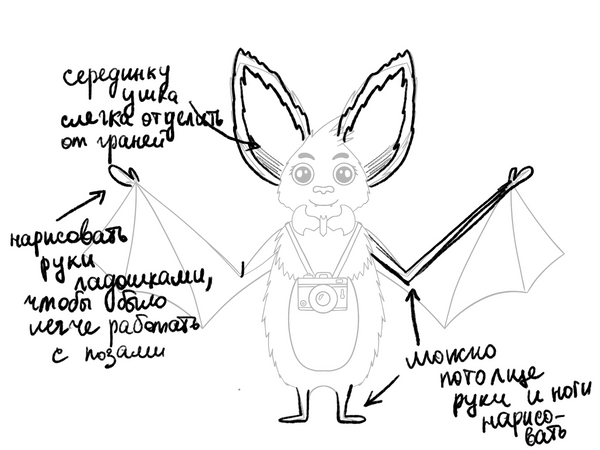 серединку
ушка
слегка отделить
от граней
нарисовать
руки
ладошками,
чтобы было
легче работать
с позами
можно
потолще
руки и ноги
нарисо-
вать